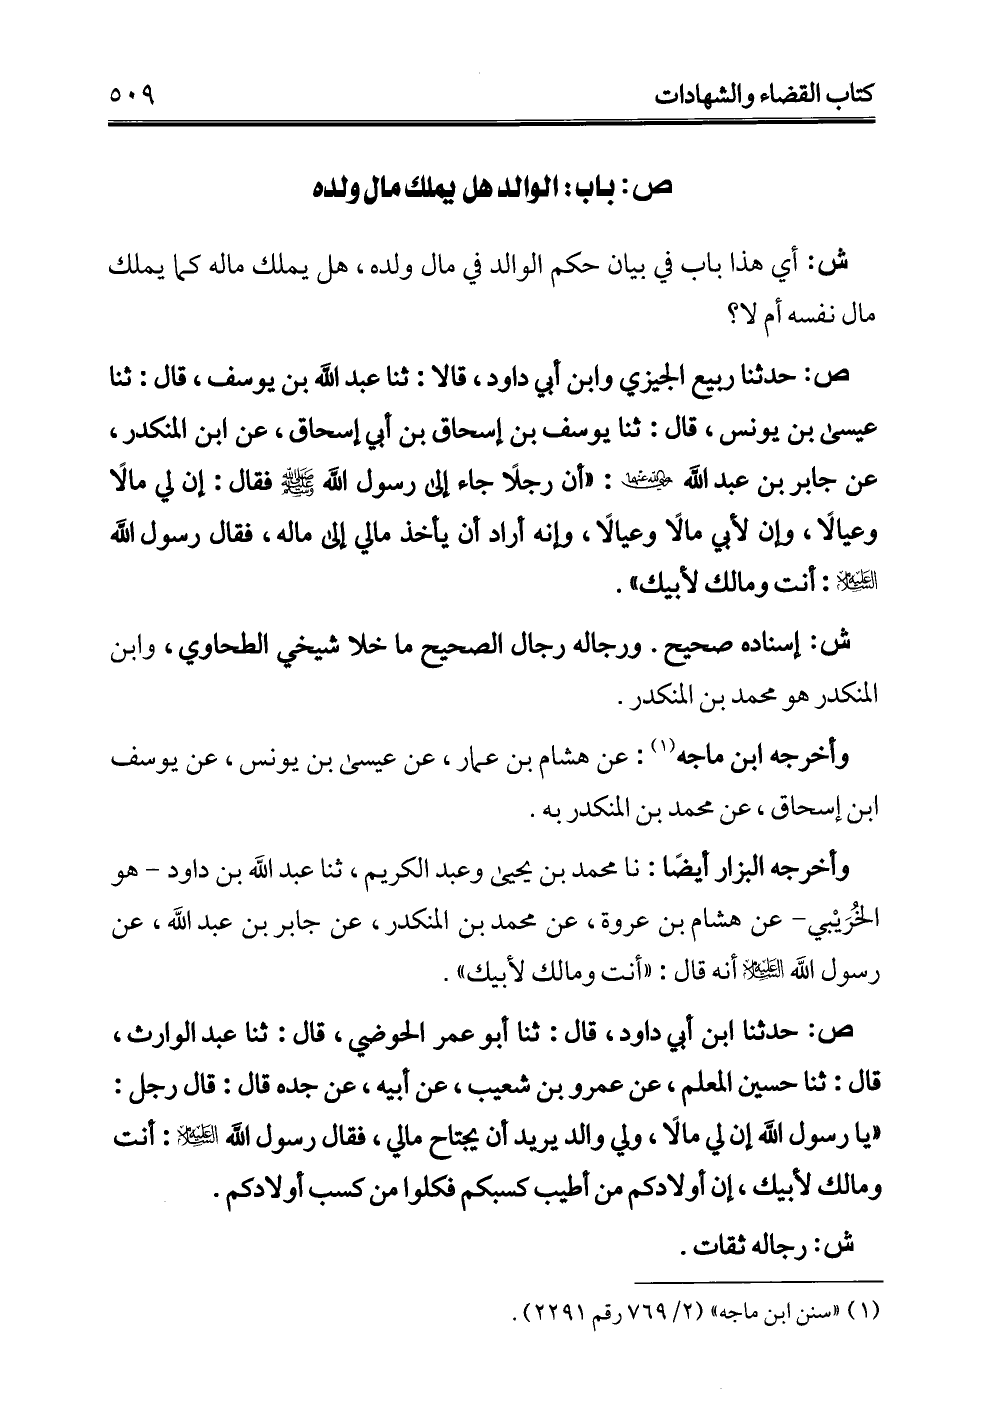 كتاب القضاء والشهادات ٥٠٩
ص: باب: الوالد هل يملك مال ولده
ش: أي هذا باب في بيان حكم الوالد في مال ولده ، هل يملك ماله كما يملك
مال نفسه أم لا؟
ص: حدثنا ربيع الجيزي وابن أبي داود ، قالا : ثنا عبد الله بن يوسف ، قال : ثنا
عيسىٰ بن يونس ، قال : ثنا يوسف بن إسحاق بن أبي إسحاق ، عن ابن المنكدر ،
عن جابر بن عبد الله رضي الله عنهما : «أن رجلًا جاء إلىٰ رسول الله ﷺ فقال : إن لي مالًا
وعيالًا ، وإن لأبي مالًا وعيالًا ، وإنه أراد أن يأخذ مالي إلىٰ ماله ، فقال رسول الله
عليه السلام : أنت ومالك لأبيك» .
ش: إسناده صحيح . ورجاله رجال الصحيح ما خلا شيخي الطحاوي ، وابن
المنكدر هو محمد بن المنكدر .
وأخرجه ابن ماجه(١) : عن هشام بن عمار ، عن عيسىٰ بن يونس ، عن يوسف
ابن إسحاق ، عن محمد بن المنكدر به .
وأخرجه البزار أيضًا : نا محمد بن يحيىٰ وعبد الكريم ، ثنا عبد الله بن داود - هو
الخُرَيْبي - عن هشام بن عروة ، عن محمد بن المنكدر ، عن جابر بن عبد الله ، عن
رسول الله عليه السلام أنه قال : «أنت ومالك لأبيك» .
ص: حدثنا ابن أبي داود ، قال : ثنا أبو عمر الحوضي ، قال : ثنا عبد الوارث ،
قال : ثنا حسين المعلم ، عن عمرو بن شعيب ، عن أبيه ، عن جده قال : قال رجل :
«يا رسول الله إن لي مالًا ، ولي والد يريد أن يجتاح مالي ، فقال رسول الله عليه السلام : أنت
ومالك لأبيك ، إن أولادكم من أطيب كسبكم فكلوا من كسب أولادكم .
ش: رجاله ثقات .
(١) «سنن ابن ماجه» (٢/ ٧٦٩ رقم ٢٢٩١) .